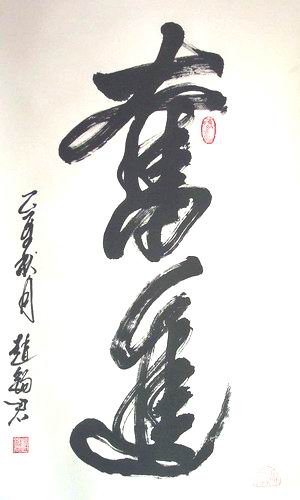 奮進
乙亥秋月
趙錫君